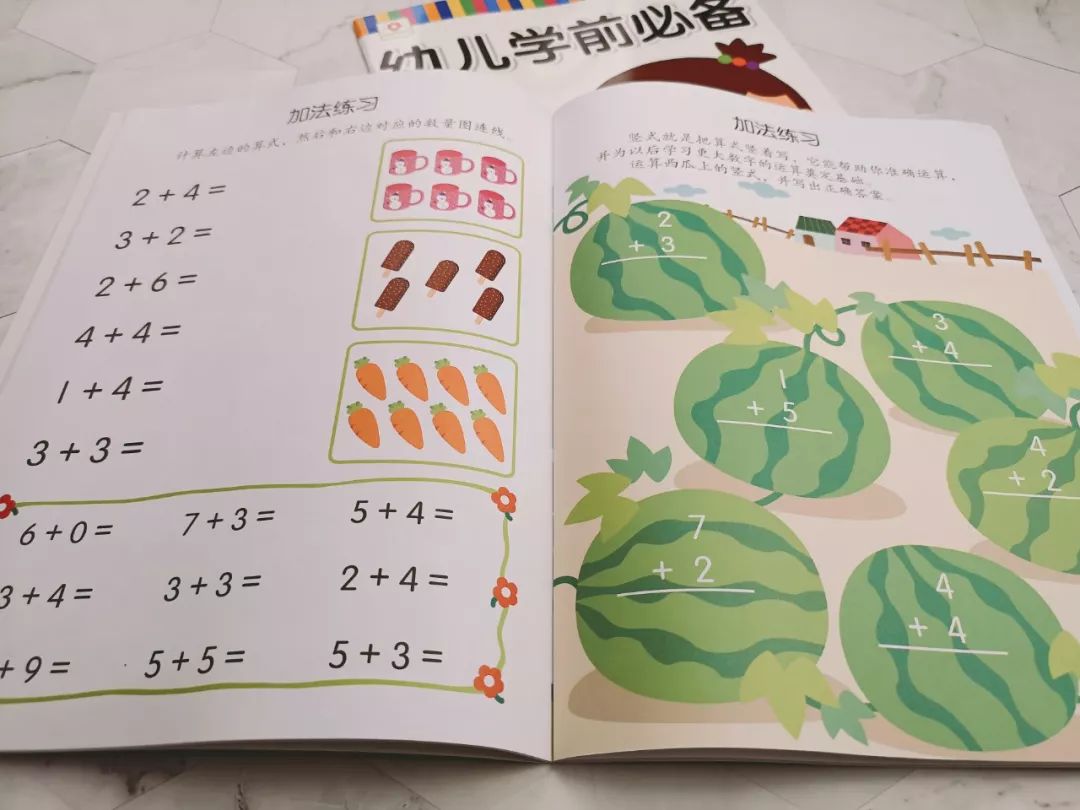 幼儿学前必备
加法练习
计算左边的算式，然后和右边对应的数量图连线。
2+4=
3+2=
2+6=
4+4=
1+4=
3+3=
6+0= 7+3= 5+4=
3+4= 3+3= 2+4=
+9= 5+5= 5+3=
加法练习
竖式就是把算式竖着写，它能帮助你准确运算，
并为以后学习更大数字的运算奠定基础。
运算西瓜上的竖式，并写出正确答案。
2
+ 3
3
+ 4
1
+ 5
4
+ 2
7
+ 2
4
+ 4